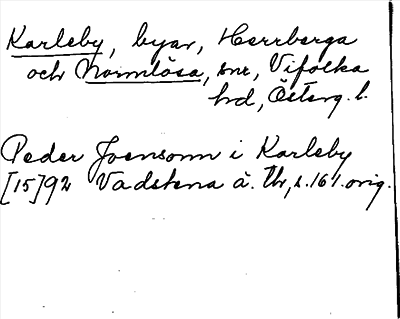 Karleby, byar, Herrberga
och Normlösa, snr, Vifolka
hd, Österg. l.
Peder Joensonn i Karleby
[15]92 Vadstena ä. tbr, s. 161. orig.